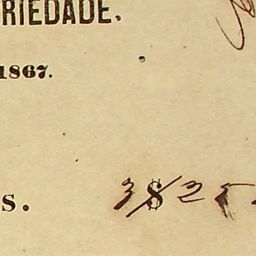 RIEDADE.
1867.
s. 3$25